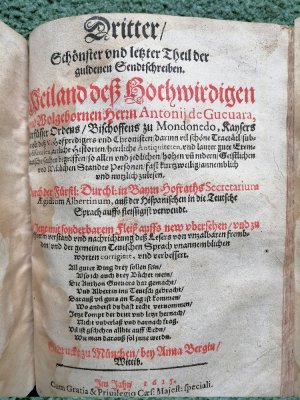 Dritter/
Schönster vnd letzter Theil der
guldenen Sendtschreiben.
Weiland deß Hochwirdigen
vnd Wolgebornen Herrn Antonij de Gueuara,
Ordens/ Bischoffens zu Mondonedo, Kaysers
Hofpredigers vnd Chronisten: darinn vil schöne Tractätl, sub-
Historien, herrliche Antiquiteten, vnd lauter gute Exem-
begriffen: so allen vnd jedlichen hohen vñ nidern/ Geistlichen
vnd Weltlichen Standes Personen, fast kurtzweilig/ annemblich
vnd nutzlich zulesen.
Durch der Fürstl: Durchl: in Bayrn Hofraths Secretarium
Ægidium Albertinum, auß der Hispanischen in die Teutsche
Sprach auffs fleissigist verwendt.
Jetzt mit sonderbarem Fleiß auffs new vbersehen/ vnd zu
verstand vnd nachrichtung deß Lesers von vnzalbarn fremb-
den/ vnd der gemeinen Teutschen Sprach vnannemblichen
worten corrigiert, vnd verbessert.
All guter Ding drey sollen sein/
Also ich auch drey Bücher mein/
Die Anthoni Gueuara hat gemacht/
Vnd Albertin ins Teutsch gebracht/
Darauß vil guts an Tag ist kommen/
Wo anderst du hast recht vernommen/
Jetzt kompt der dritt vnd letzt hernach/
Nicht vnderlaß vnd darnach frag.
Da ist geschehen allbie auff Erdn/
Wie man darauß sol inne werdn.
Getruckt zu München/ bey Anna Bergin/
Wittib.
Im Jahr/ 1625.
Cum Gratia & Priuilegio Cæs: Majest: speciali.